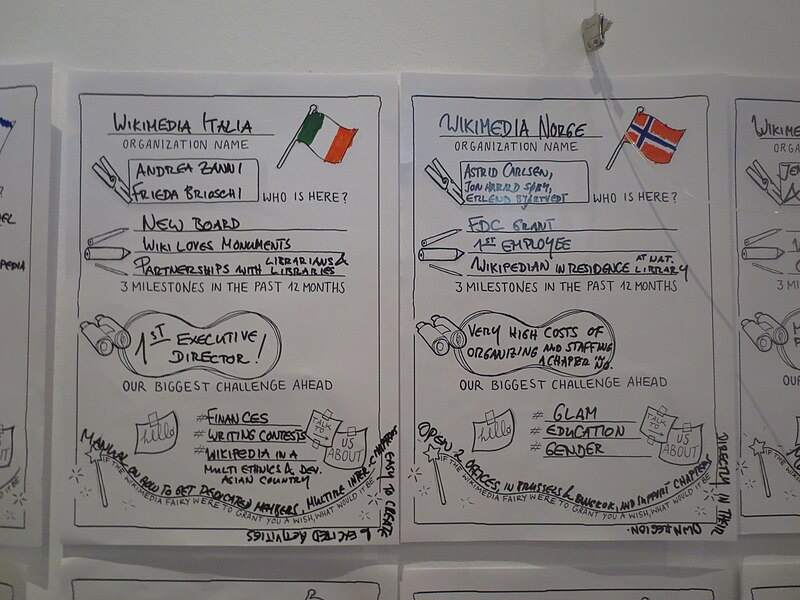 WIKIMEDIA ITALIA
ORGANIZATION NAME
ANDREA ZANNI
FRIEDA BRIOSCHI
WHO IS HERE?
NEW BOARD
WIKI LOVES MONUMENTS
PARTNERSHIPS WITH LIBRARIANS & LIBRARIES
3 MILESTONES IN THE PAST 12 MONTHS
1ST EXECUTIVE
DIRECTOR!
OUR BIGGEST CHALLENGE AHEAD
hello
# FINANCES
# WRITING CONTESTS
# WIKIPEDIA IN A
MULTI ETHNICS & DEV.
ASIAN COUNTRY
TALK TO
US
ABOUT
MANUAL ON HOW TO GET DEDICATED MEMBERS,
EASY TO CREATE
& EXCITED ACTIVITIES
IF THE WIKIMEDIA FAIRY WERE TO GRANT YOU A WISH, WHAT WOULD IT BE?
WIKIMEDIA NORGE
ORGANIZATION NAME
ASTRID CARLSEN,
JON HARALD SØBY,
ERLEND BJØRTVEDT
WHO IS HERE?
FDC GRANT
1ST EMPLOYEE
WIKIPEDIAN IN RESIDENCE AT NAT. LIBRARY
3 MILESTONES IN THE PAST 12 MONTHS
VERY HIGH COSTS OF
ORGANIZING AND STAFFING
A CHAPER IN NO.
OUR BIGGEST CHALLENGE AHEAD
hello
# GLAM
# EDUCATION
# GENDER
TALK TO
US
ABOUT
OPEN 2 OFFICES, IN BRUSSELS & BANGKOK, AND SUPPORT CHAPTERS
DIRECTLY IN THEIR
OWN REGION.
IF THE WIKIMEDIA FAIRY WERE TO GRANT YOU A WISH, WHAT WOULD IT BE?